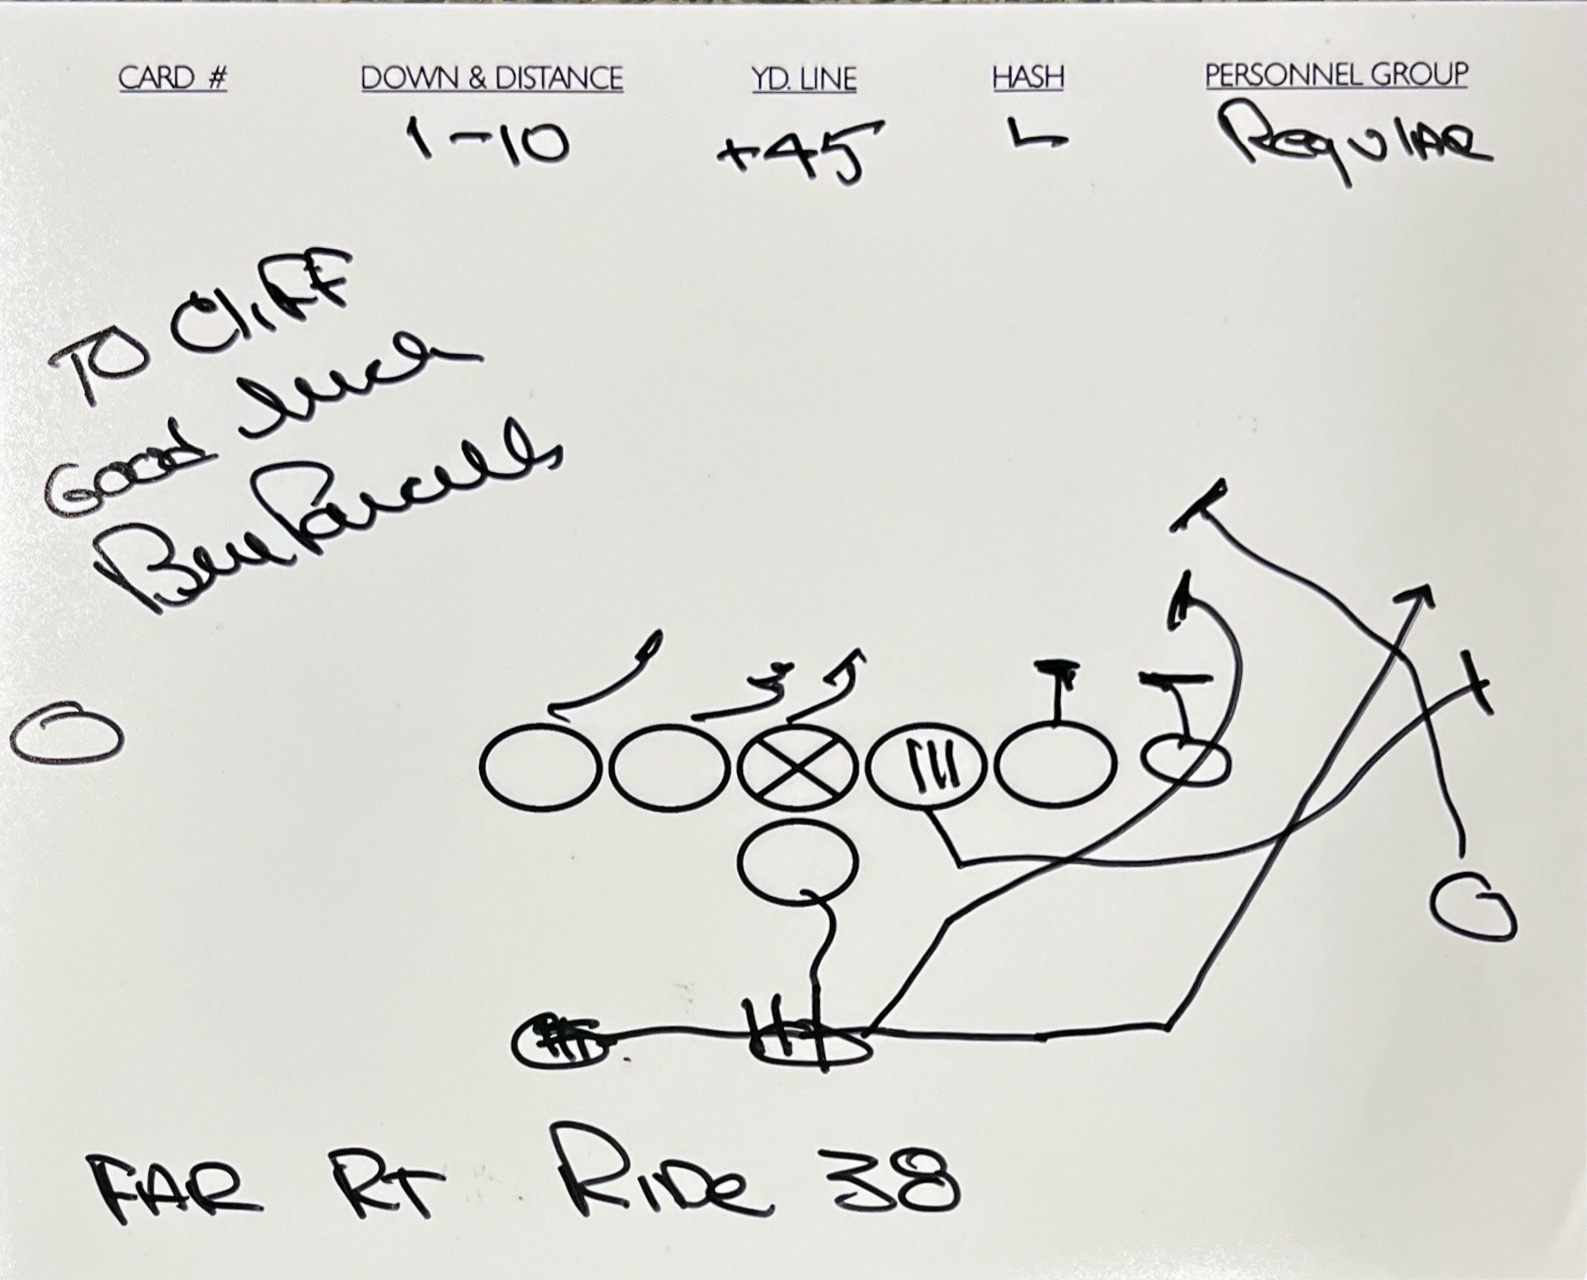 CARD # DOWN & DISTANCE YD. LINE HASH PERSONNEL GROUP
1-10 +45 L Regular
TO Cliff
Good Luck
Bill Parcells
FAR RT RIDe 38